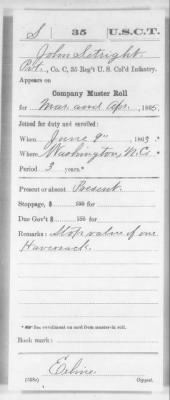 S | 35 | U.S.C.T.
John Setright
Pvt., Co. C, 35 Reg't U. S. Col'd Infantry.
Appears on
Company Muster Roll
for Mar. and Apr., 1865.
Joined for duty and enrolled:
When June 9", 1863 *
Where Washington, N.C. *
Period 3 years.*
Present or absent Present
Stoppage, $ 100 for
Due Gov't $ 100 for
Remarks: Stop value of one
Haversack.
* See enrollment on card from muster-in roll.
Book mark:
(358c) Copyist.